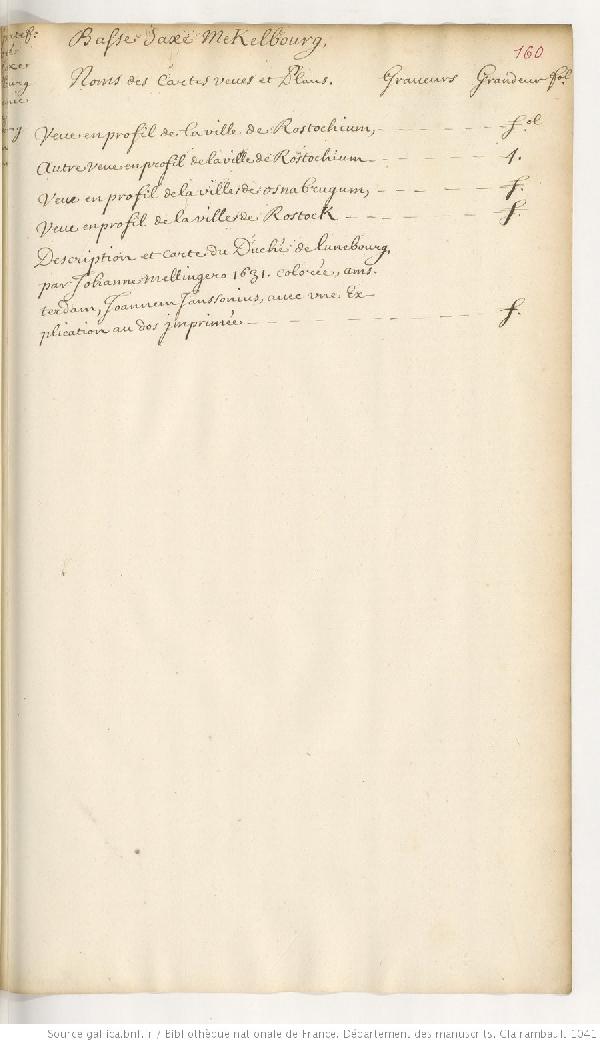 Basse Saxe Mekelbourg.
160
Noms des Cartes veues et Plans. Graveurs Grandeur fol.
Veue en profil de la ville de Rostochium, - - - - - - fol
Autre veue en profil de la ville de Rostochium - - - - - 1.
Veue en profil de la ville de osnabrugum, - - - - - f.
Veue en profil de la ville de Rostock - - - - - - f.
Description et carte du Duché de lunebourg,
par Johanne mellingero 1631. colorée, ams-
terdam, Joannem Janssonius, avec vne Ex-
plication au dos jmprimée - - - - - - - f.
Source gallica.bnf.fr / Bibliothèque nationale de France. Département des manuscrits. Clairambault 1041